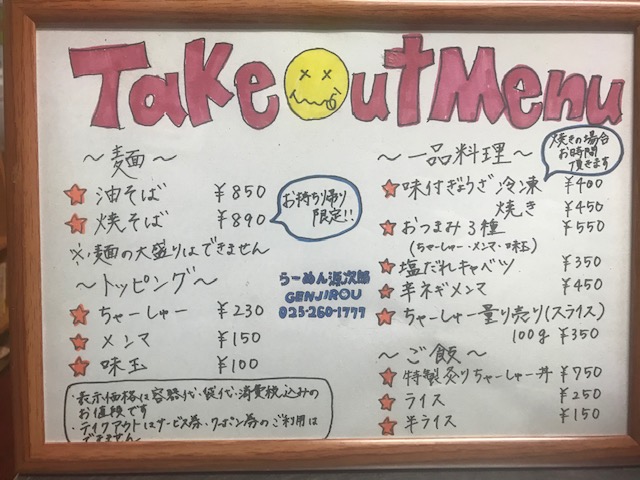 Take Out Menu
～麺～
油そば ￥850
焼そば ￥890
お持ち帰り
限定!!
※麺の大盛りはできません
～トッピング～
ちゃーしゅー ￥230
メンマ ￥150
味玉 ￥100
・表示価格は容器代・袋代・消費税込みの
お値段です
・テイクアウトはサービス券・クーポン券のご利用は
できません
らーめん源次郎
GENJIROU
025-260-1777
～一品料理～
焼きの場合
お時間
頂きます
味付ぎょうざ 冷凍 ￥400
焼き ￥450
おつまみ3種 ￥550
(ちゃーしゅー・メンマ・味玉)
塩だれキャベツ ￥350
辛ネギメンマ ￥450
ちゃーしゅー量り売り(スライス)
100g ￥350
～ご飯～
特製炙りちゃーしゅー丼 ￥750
ライス ￥250
半ライス ￥150